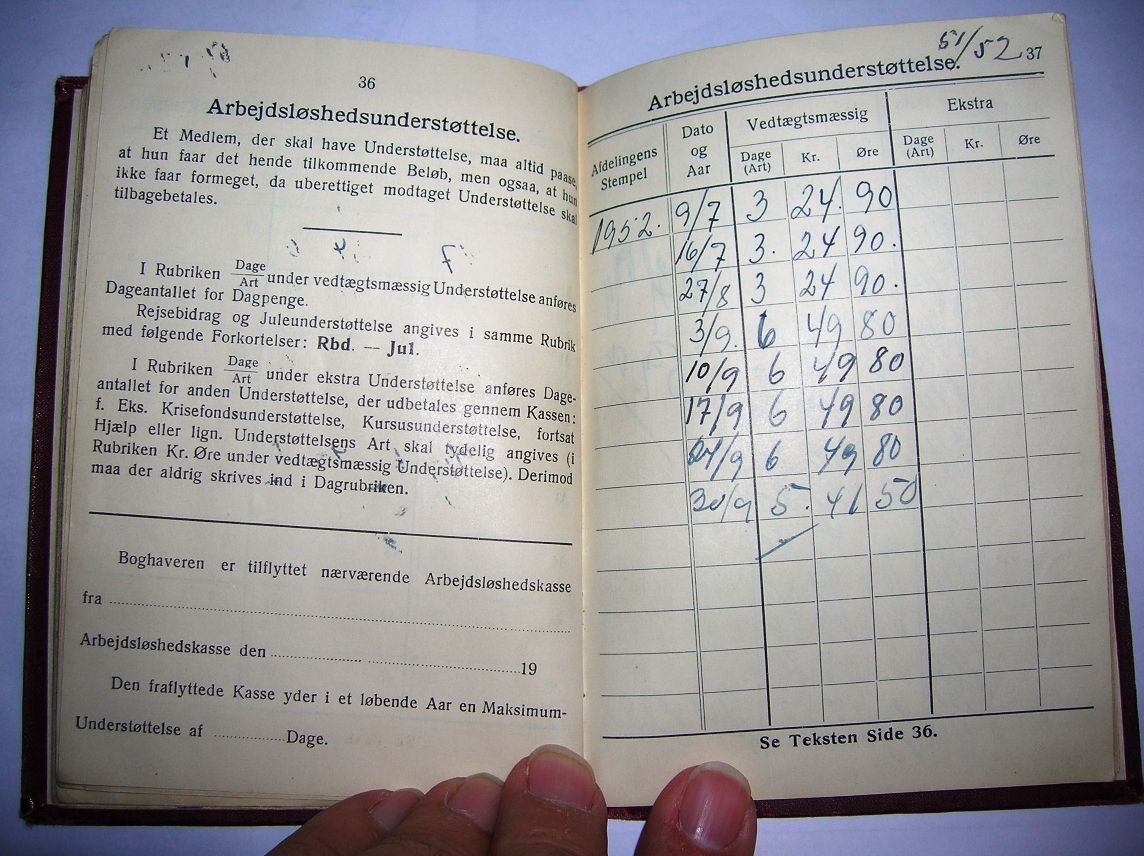 36
Arbejdsløshedsunderstøttelse.
Et Medlem, der skal have Understøttelse, maa altid paase,
at hun faar det hende tilkommende Beløb, men ogsaa, at hun
ikke faar formeget, da uberettiget modtaget Understøttelse skal
tilbagebetales.
I Rubriken Dage/Art under vedtægtsmæssig Understøttelse anføres
Dageantallet for Dagpenge.
Rejsebidrag og Juleunderstøttelse angives i samme Rubrik
med følgende Forkortelser: Rbd. — Jul.
I Rubriken Dage/Art under ekstra Understøttelse anføres Dage-
antallet for anden Understøttelse, der udbetales gennem Kassen:
f. Eks. Krisefondsunderstøttelse, Kursusunderstøttelse, fortsat
Hjælp eller lign. Understøttelsens Art skal tydelig angives (i
Rubriken Kr. Øre under vedtægtsmæssig Understøttelse). Derimod
maa der aldrig skrives ind i Dagrubriken.
Boghaveren er tilflyttet nærværende Arbejdsløshedskasse
fra
Arbejdsløshedskasse den 19
Den fraflyttede Kasse yder i et løbende Aar en Maksimum-
Understøttelse af Dage.
51/52 37
Arbejdsløshedsunderstøttelse.
Afdelingens Stempel Dato og Aar Vedtægtsmæssig Ekstra
Dage (Art) Kr. Øre Dage (Art) Kr. Øre
1952. 9/7 3 24. 90
16/7 3. 24 90.
27/8 3 24 90.
3/9. 6 49 80
10/9 6 49 80
17/9 6 49 80
24/9 6 49 80
30/9 5. 41 50
Se Teksten Side 36.